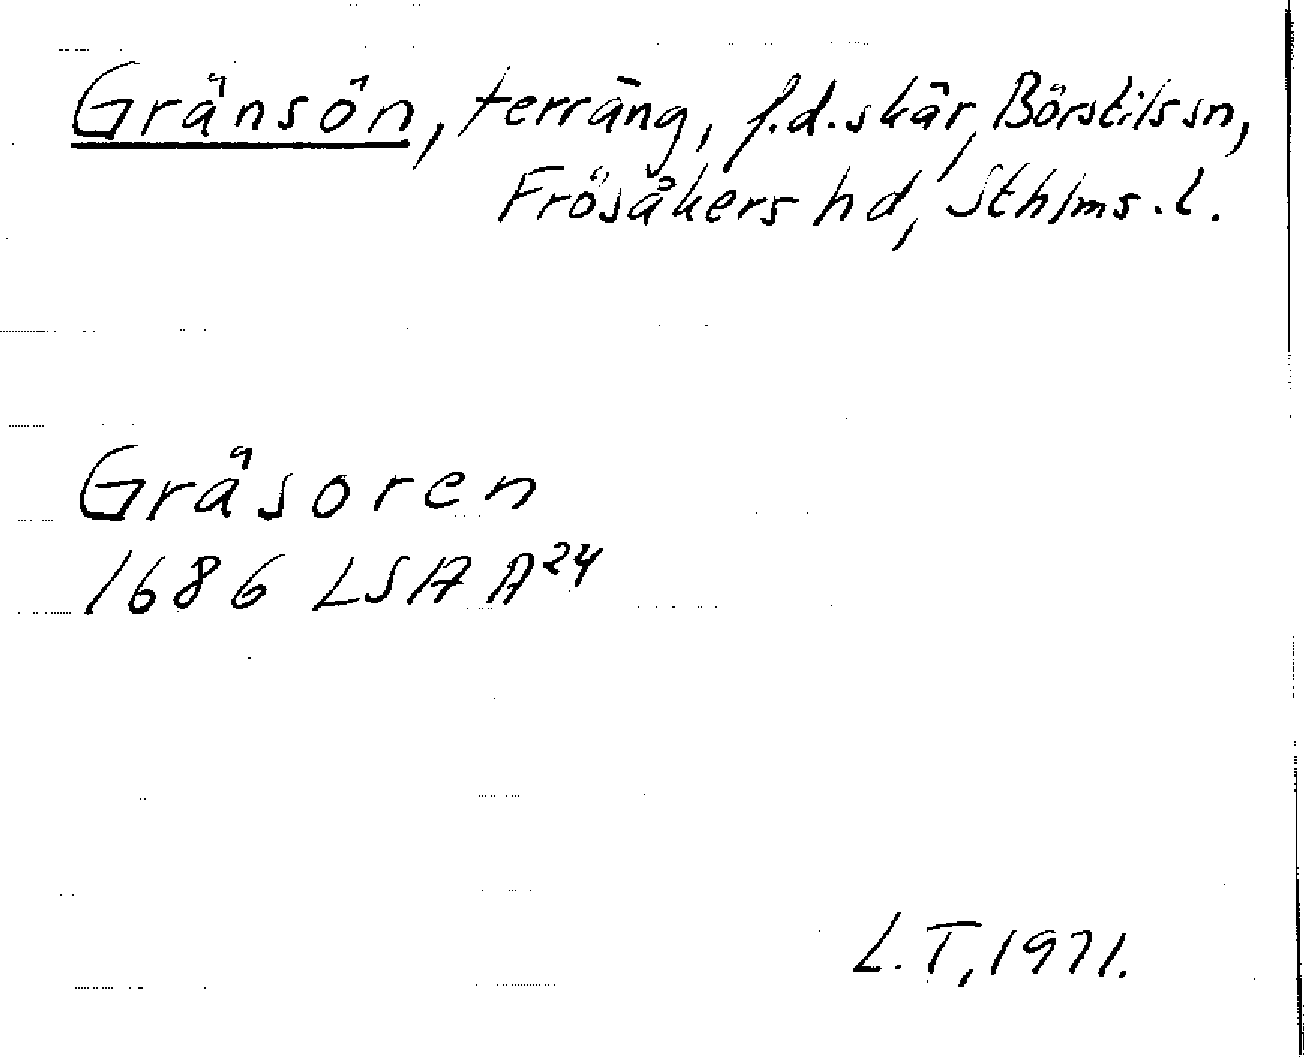 Gränsön, terräng, f.d. skär, Börstils sn,
Frösåkers hd, Sthlms. l.
Gräsoren
1686 LSA A24
L. T, 1971.